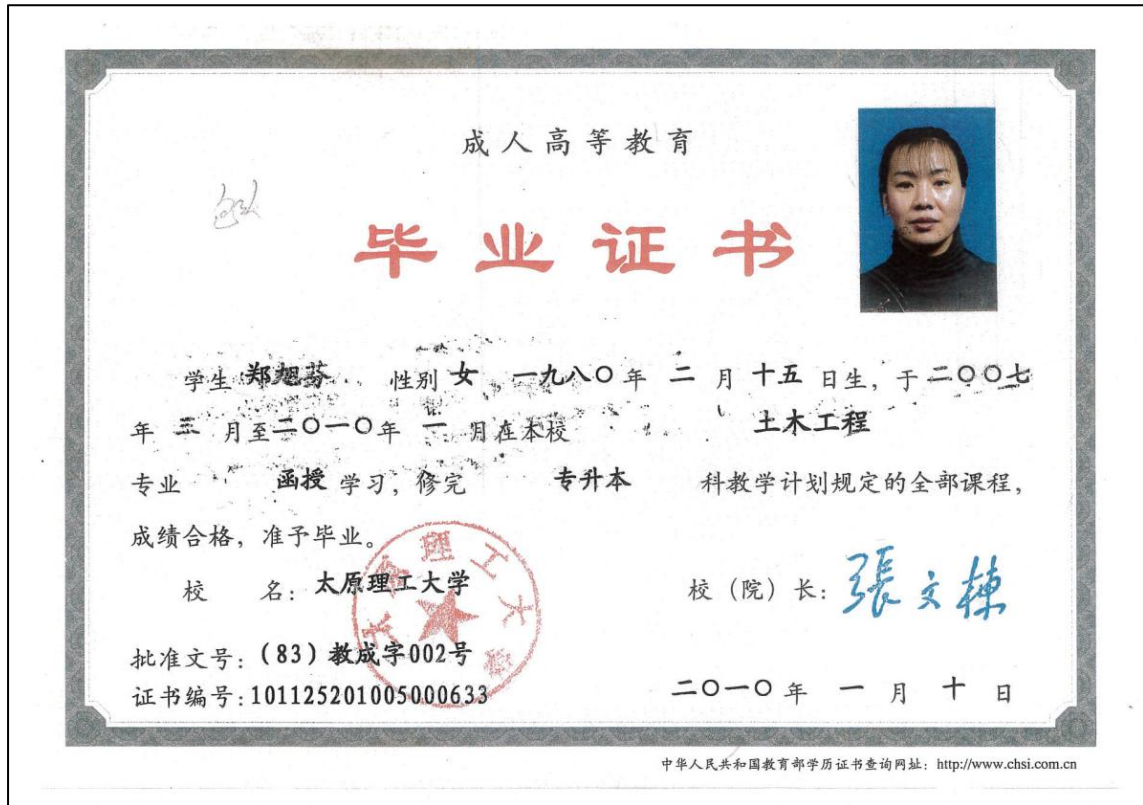 成人高等教育
毕业证书
学生 郑旭芬 性别 女，一九八〇年 二 月 十五 日生，于二〇〇七
年 三 月至二〇一〇年 一 月在本校 土木工程
专业 函授 学习，修完 专升本 科教学计划规定的全部课程，
成绩合格，准予毕业。
校 名：太原理工大学 校（院）长：張文棟
太原理工大学
批准文号：（83）教成字002号
证书编号：101125201005000633 二〇一〇年 一 月 十 日
中华人民共和国教育部学历证书查询网址：http://www.chsi.com.cn